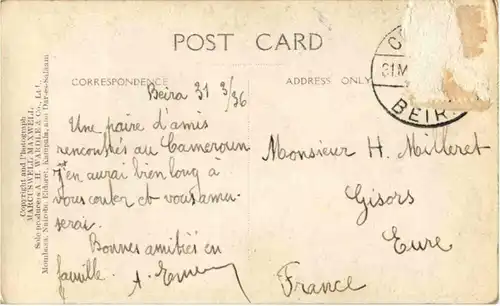 POST CARD
CORRESPONDENCE
ADDRESS ONLY
Beira 31 3/36
Une paire d'amis
rencontrés au Cameroun
J'en aurai bien long à
vous conter et vous amu-
serai.
Bonnes amitiés en
famille.
A.
Monsieur H. Milleret
Gisors
Eure
France
31.M
BEIR
Copyright and Photograph
MARCUSWELL MAXWELL.
Sole producers A. H. WARDLE & Co., Ltd.
Mombasa, Nairobi, Eldoret, Kampala, and Dar-es-Salaam